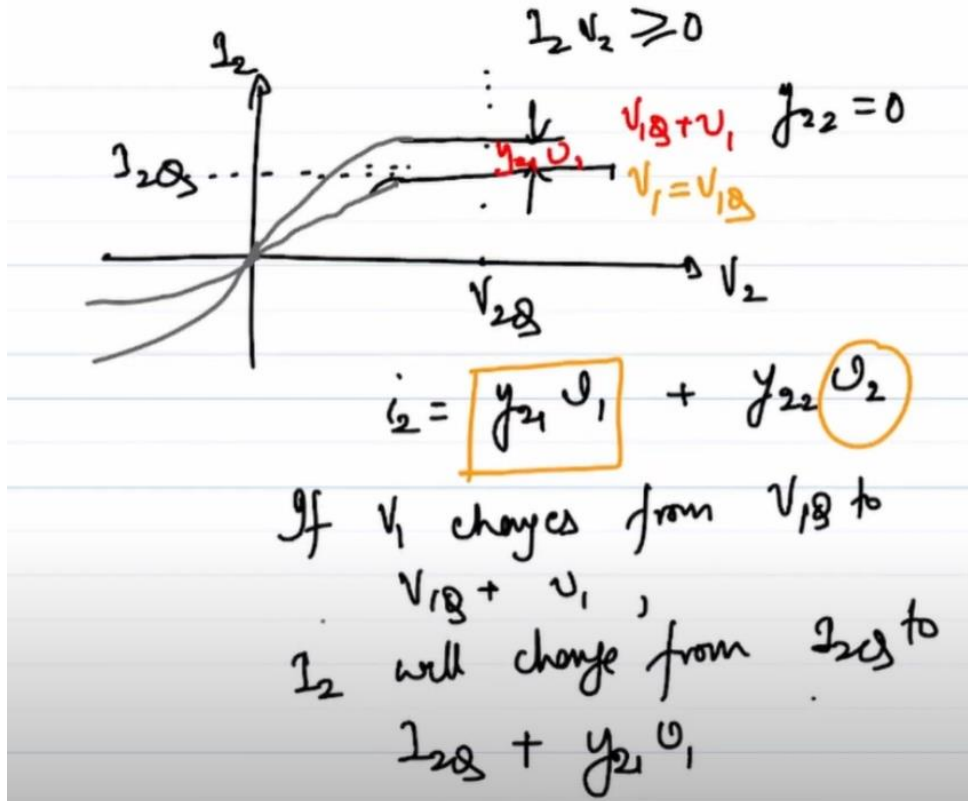 I₂ V₂ ≥ 0
I₂
y₂₂ = 0
V₁Q + v₁
y₂₁ v₁
I₂Q
V₁ = V₁Q
V₂
V₂Q
i₂ = y₂₁ v₁ + y₂₂ v₂
If V₁ changes from V₁Q to
V₁Q + v₁ ,
I₂ will change from I₂Q to
I₂Q + y₂₁ v₁